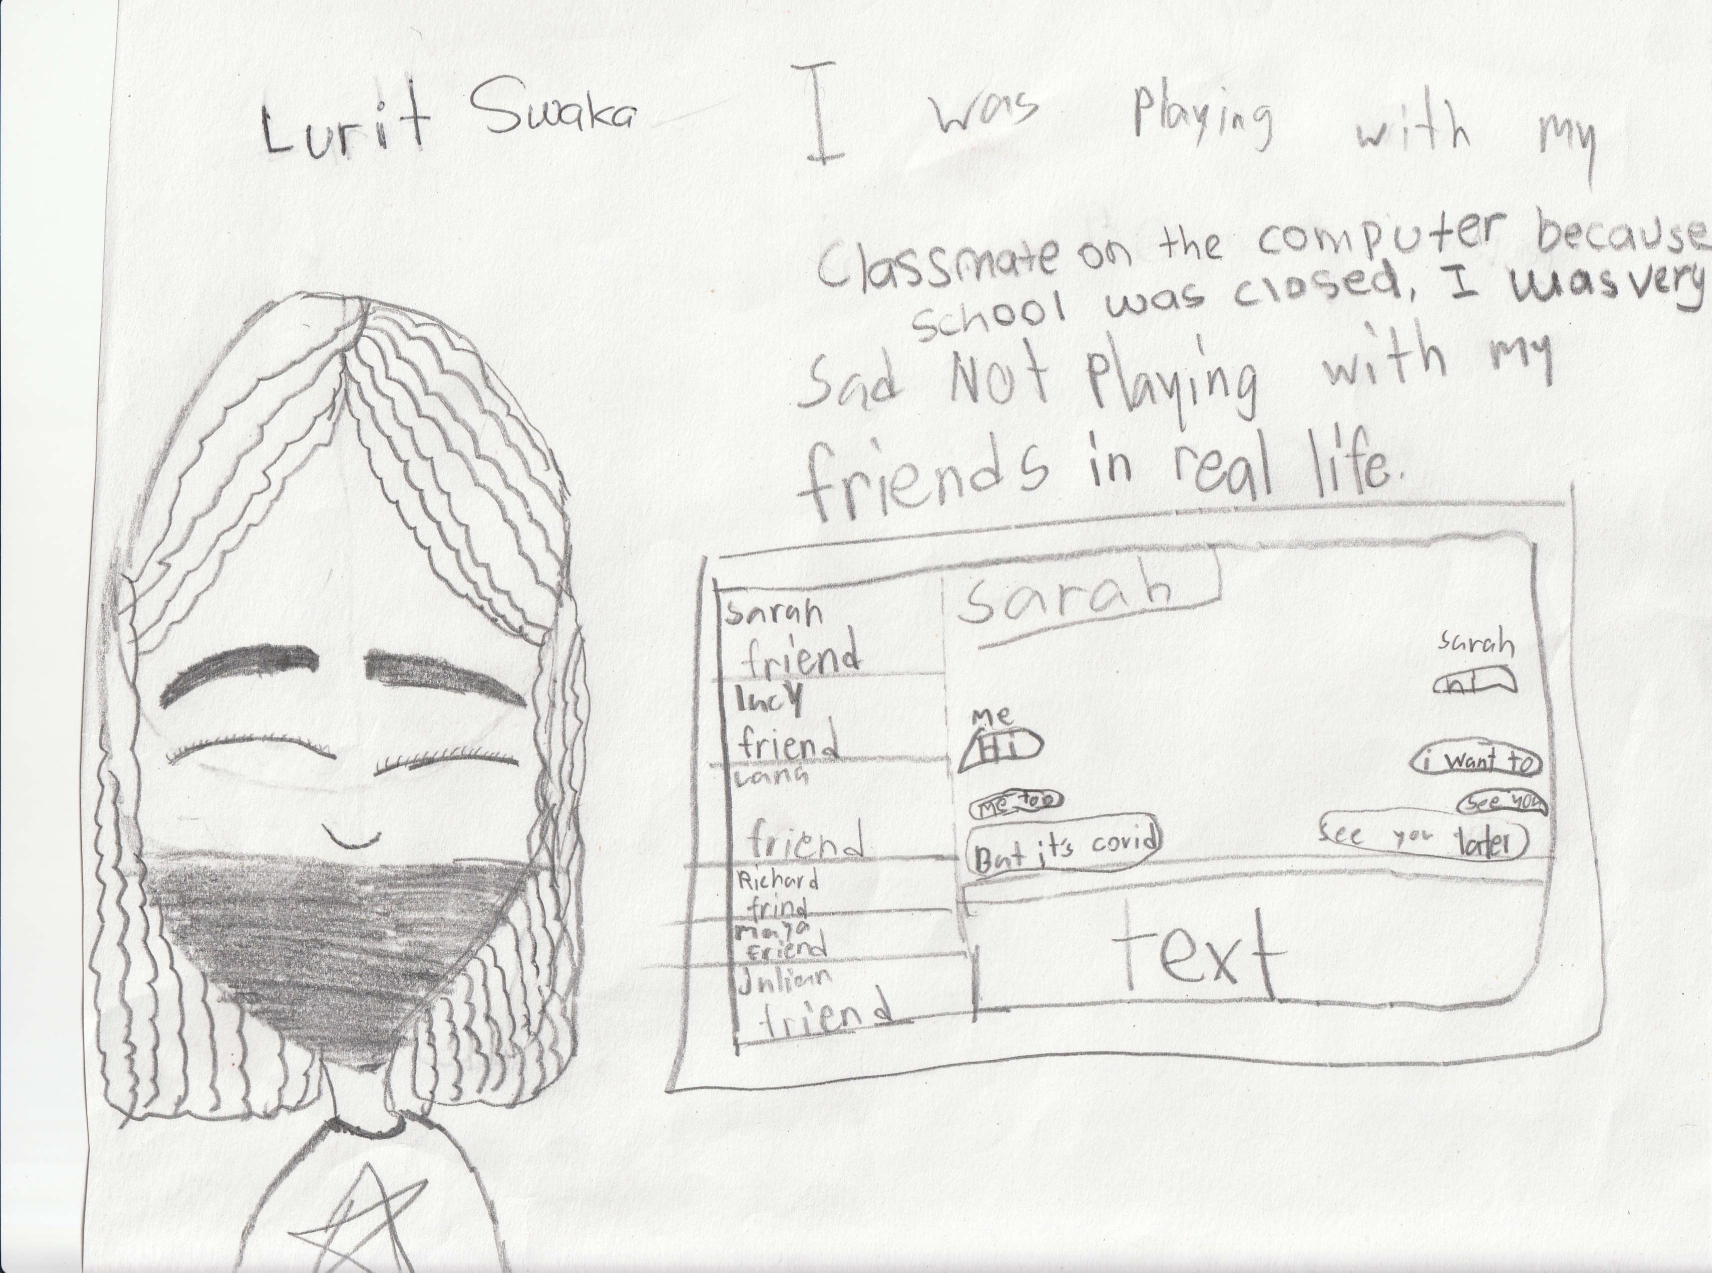 Lurit Swaka
I was playing with my
Classmate on the computer because
school was closed, I was very
Sad Not Playing with my
friends in real life.
sarah
friend
lucy
friend
Lana
friend
Richard
frind
maya
Friend
Julian
friend
sarah
sarah
hi
me
Hi
i want to
see you
me too
But it's covid
See you later
text